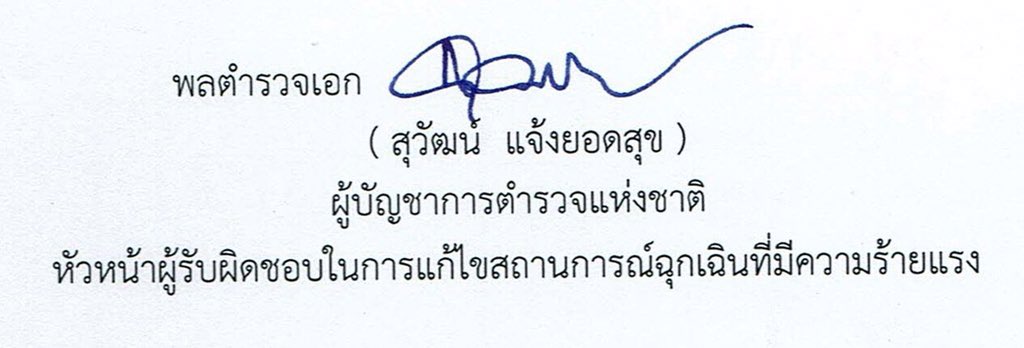 พลตำรวจเอก
( สุวัฒน์ แจ้งยอดสุข )
ผู้บัญชาการตำรวจแห่งชาติ
หัวหน้าผู้รับผิดชอบในการแก้ไขสถานการณ์ฉุกเฉินที่มีความร้ายแรง